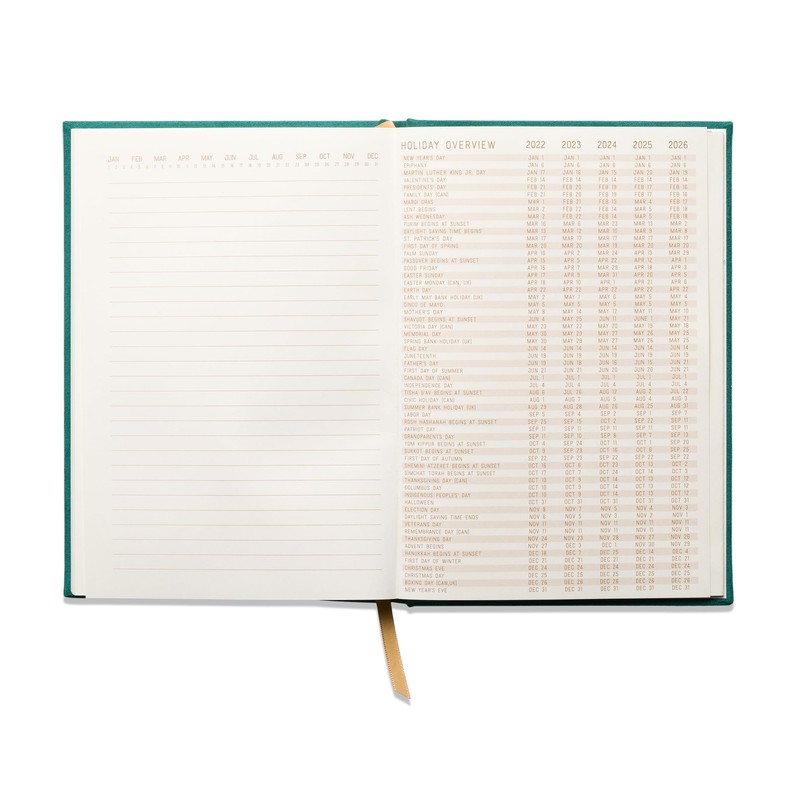 JAN FEB MAR APR MAY JUN JUL AUG SEP OCT NOV DEC
HOLIDAY OVERVIEW 2022 2023 2024 2025 2026
NEW YEAR'S DAY JAN 1 JAN 1 JAN 1 JAN 1 JAN 1
EPIPHANY JAN 6 JAN 6 JAN 6 JAN 6 JAN 6
MARTIN LUTHER KING JR. DAY JAN 17 JAN 16 JAN 15 JAN 20 JAN 19
VALENTINE'S DAY FEB 14 FEB 14 FEB 14 FEB 14 FEB 14
PRESIDENTS' DAY FEB 21 FEB 20 FEB 19 FEB 17 FEB 16
FAMILY DAY (CAN) FEB 21 FEB 20 FEB 19 FEB 17 FEB 16
MARDI GRAS MAR 1 FEB 21 FEB 13 MAR 4 FEB 17
LENT BEGINS MAR 2 FEB 22 FEB 14 MAR 5 FEB 18
ASH WEDNESDAY MAR 2 FEB 22 FEB 14 MAR 5 FEB 18
PURIM BEGINS AT SUNSET MAR 16 MAR 6 MAR 23 MAR 13 MAR 2
DAYLIGHT SAVING TIME BEGINS MAR 13 MAR 12 MAR 10 MAR 9 MAR 8
ST. PATRICK'S DAY MAR 17 MAR 17 MAR 17 MAR 17 MAR 17
FIRST DAY OF SPRING MAR 20 MAR 20 MAR 19 MAR 20 MAR 20
PALM SUNDAY APR 10 APR 2 MAR 24 APR 13 MAR 29
PASSOVER BEGINS AT SUNSET APR 15 APR 5 APR 22 APR 12 APR 1
GOOD FRIDAY APR 15 APR 7 MAR 29 APR 18 APR 3
EASTER SUNDAY APR 17 APR 9 MAR 31 APR 20 APR 5
EASTER MONDAY (CAN, UK) APR 18 APR 10 APR 1 APR 21 APR 6
EARTH DAY APR 22 APR 22 APR 22 APR 22 APR 22
EARLY MAY BANK HOLIDAY (UK) MAY 2 MAY 1 MAY 6 MAY 5 MAY 4
CINCO DE MAYO MAY 5 MAY 5 MAY 5 MAY 5 MAY 5
MOTHER'S DAY MAY 8 MAY 14 MAY 12 MAY 11 MAY 10
SHAVUOT BEGINS AT SUNSET JUN 4 MAY 25 JUN 11 JUNE 1 MAY 21
VICTORIA DAY (CAN) MAY 23 MAY 22 MAY 20 MAY 19 MAY 18
MEMORIAL DAY MAY 30 MAY 29 MAY 27 MAY 26 MAY 25
SPRING BANK HOLIDAY (UK) MAY 30 MAY 29 MAY 27 MAY 26 MAY 25
FLAG DAY JUN 14 JUN 14 JUN 14 JUN 14 JUN 14
JUNETEENTH JUN 19 JUN 19 JUN 19 JUN 19 JUN 19
FATHER'S DAY JUN 19 JUN 18 JUN 16 JUN 15 JUN 21
FIRST DAY OF SUMMER JUN 21 JUN 21 JUN 20 JUN 20 JUN 21
CANADA DAY (CAN) JUL 1 JUL 1 JUL 1 JUL 1 JUL 1
INDEPENDENCE DAY JUL 4 JUL 4 JUL 4 JUL 4 JUL 4
TISHA B'AV BEGINS AT SUNSET AUG 6 JUL 26 AUG 12 AUG 2 JUL 22
CIVIC HOLIDAY (CAN) AUG 1 AUG 7 AUG 5 AUG 4 AUG 3
SUMMER BANK HOLIDAY (UK) AUG 29 AUG 28 AUG 26 AUG 25 AUG 31
LABOR DAY SEP 5 SEP 4 SEP 2 SEP 1 SEP 7
ROSH HASHANAH BEGINS AT SUNSET SEP 25 SEP 15 OCT 2 SEP 22 SEP 11
PATRIOT DAY SEP 11 SEP 11 SEP 11 SEP 11 SEP 11
GRANDPARENTS DAY SEP 11 SEP 10 SEP 8 SEP 7 SEP 13
YOM KIPPUR BEGINS AT SUNSET OCT 4 SEP 24 OCT 11 OCT 1 SEP 20
SUKKOT BEGINS AT SUNSET OCT 9 SEP 29 OCT 16 OCT 6 SEP 25
FIRST DAY OF AUTUMN SEP 22 SEP 23 SEP 22 SEP 22 SEP 22
SHEMINI ATZERET BEGINS AT SUNSET OCT 16 OCT 6 OCT 23 OCT 13 OCT 2
SIMCHAT TORAH BEGINS AT SUNSET OCT 17 OCT 7 OCT 24 OCT 14 OCT 3
THANKSGIVING (CAN) OCT 10 OCT 9 OCT 14 OCT 13 OCT 12
COLUMBUS DAY OCT 10 OCT 9 OCT 14 OCT 13 OCT 12
INDIGENOUS PEOPLES' DAY OCT 10 OCT 9 OCT 14 OCT 13 OCT 12
HALLOWEEN OCT 31 OCT 31 OCT 31 OCT 31 OCT 31
ELECTION DAY NOV 8 NOV 7 NOV 5 NOV 4 NOV 3
DAYLIGHT SAVING TIME ENDS NOV 6 NOV 5 NOV 3 NOV 2 NOV 1
VETERANS DAY NOV 11 NOV 11 NOV 11 NOV 11 NOV 11
REMEMBRANCE DAY (CAN) NOV 11 NOV 11 NOV 11 NOV 11 NOV 11
THANKSGIVING DAY NOV 24 NOV 23 NOV 28 NOV 27 NOV 26
ADVENT BEGINS NOV 27 DEC 3 DEC 1 NOV 30 NOV 29
HANUKKAH BEGINS AT SUNSET DEC 18 DEC 7 DEC 25 DEC 14 DEC 4
FIRST DAY OF WINTER DEC 21 DEC 21 DEC 21 DEC 21 DEC 21
CHRISTMAS EVE DEC 24 DEC 24 DEC 24 DEC 24 DEC 24
CHRISTMAS DAY DEC 25 DEC 25 DEC 25 DEC 25 DEC 25
BOXING DAY (CAN,UK) DEC 26 DEC 26 DEC 26 DEC 26 DEC 26
NEW YEAR'S EVE DEC 31 DEC 31 DEC 31 DEC 31 DEC 31